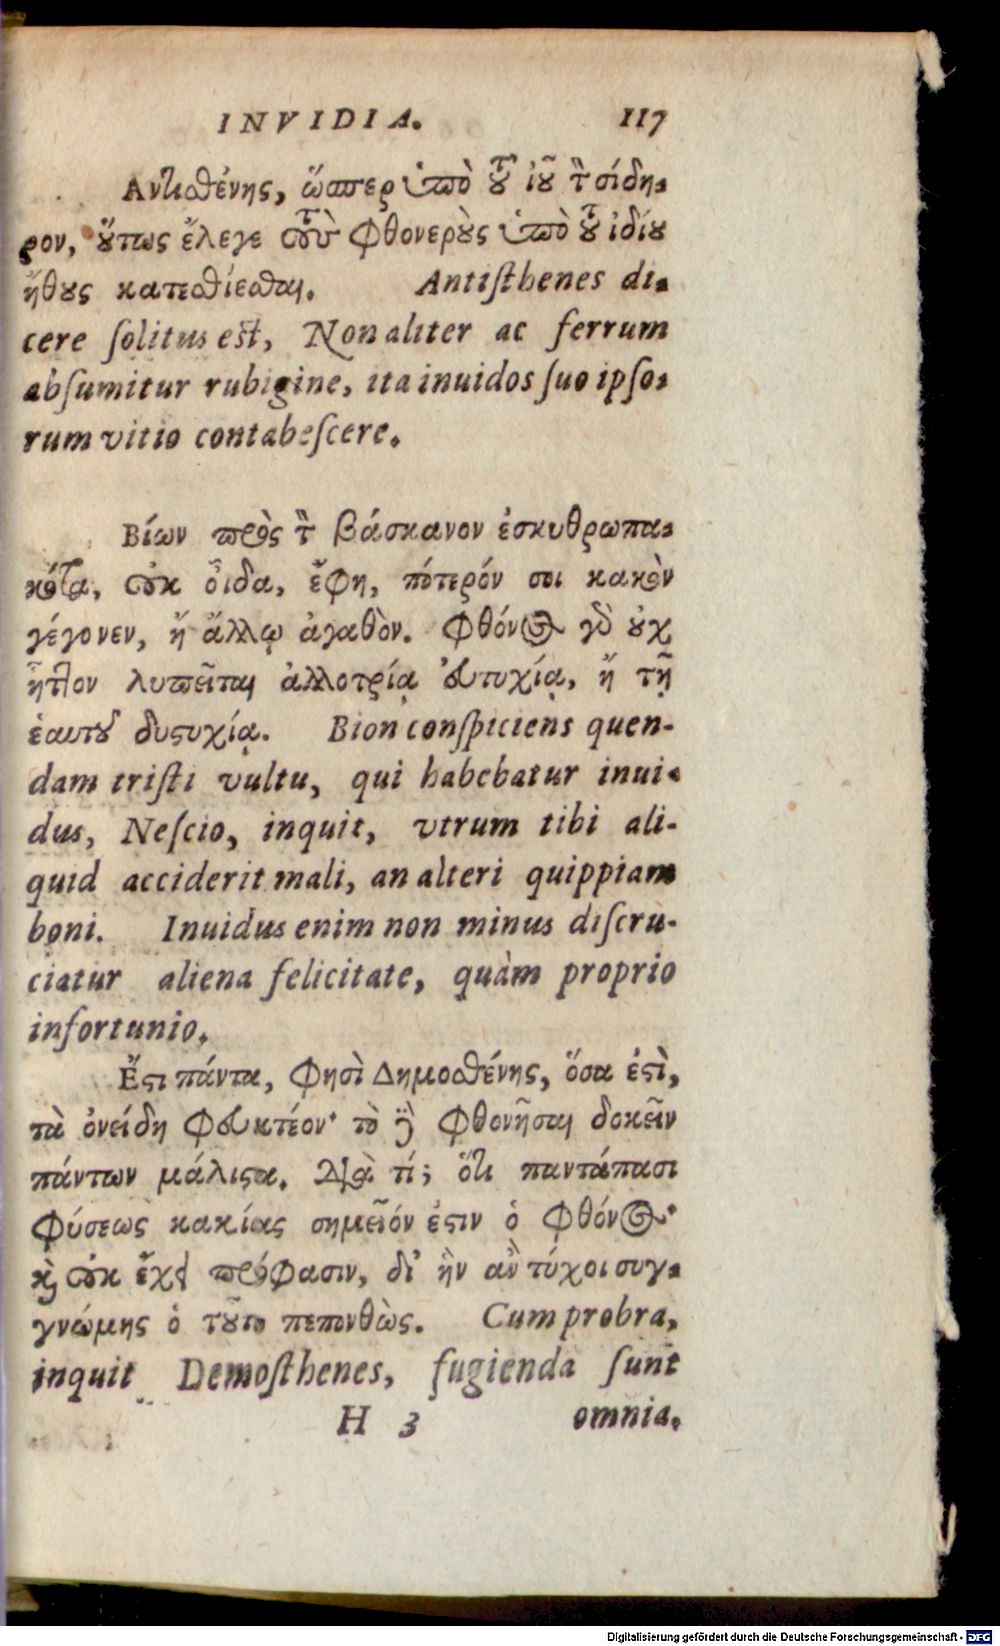 INVIDIA. 117
Ἀντισθένης, ὥσπερ ὑπὸ τοῦ ἰοῦ τὸν σίδη-
ρον, οὕτως ἔλεγε τοὺς φθονεροὺς ὑπὸ τοῦ ἰδίου
ἤθους κατεσθίεσθαι. Antiſthenes di-
cere ſolitus est, Non aliter ac ferrum
abſumitur rubigine, ita inuidos ſuo ipſo-
rum vitio contabeſcere.
Βίων πρὸς τὸν βάσκανον ἐσκυθρωπα-
κότα, οὐκ οἶδα, ἔφη, πότερόν σοι κακὸν
γέγονεν, ἢ ἄλλῳ ἀγαθὸν. Φθόνος γὰρ οὐχ
ἧττον λυπεῖται ἀλλοτρίᾳ εὐτυχίᾳ, ἢ τῇ
ἑαυτοῦ δυστυχίᾳ. Bion conſpiciens quen-
dam triſti vultu, qui habebatur inui-
dus, Neſcio, inquit, vtrum tibi ali-
quid acciderit mali, an alteri quippiam
boni. Inuidus enim non minus diſcru-
ciatur aliena felicitate, quàm proprio
infortunio.
Ἔστι πάντα, φησὶ Δημοσθένης, ὅσα ἐστὶ,
τὰ ὀνείδη φευκτέον· τὸ δὲ φθονῆσαι δοκεῖν
πάντων μάλιστα. Διὰ τί; ὅτι παντάπασι
φύσεως κακίας σημεῖόν ἐστιν ὁ φθόνος·
καὶ οὐκ ἔχει πρόφασιν, δι' ἣν ἂν τύχοι συγ-
γνώμης ὁ τοῦτο πεπονθὼς. Cum probra,
inquit Demoſthenes, fugienda ſunt
H 3 omnia,
Digitalisierung gefördert durch die Deutsche Forschungsgemeinschaft - DFG